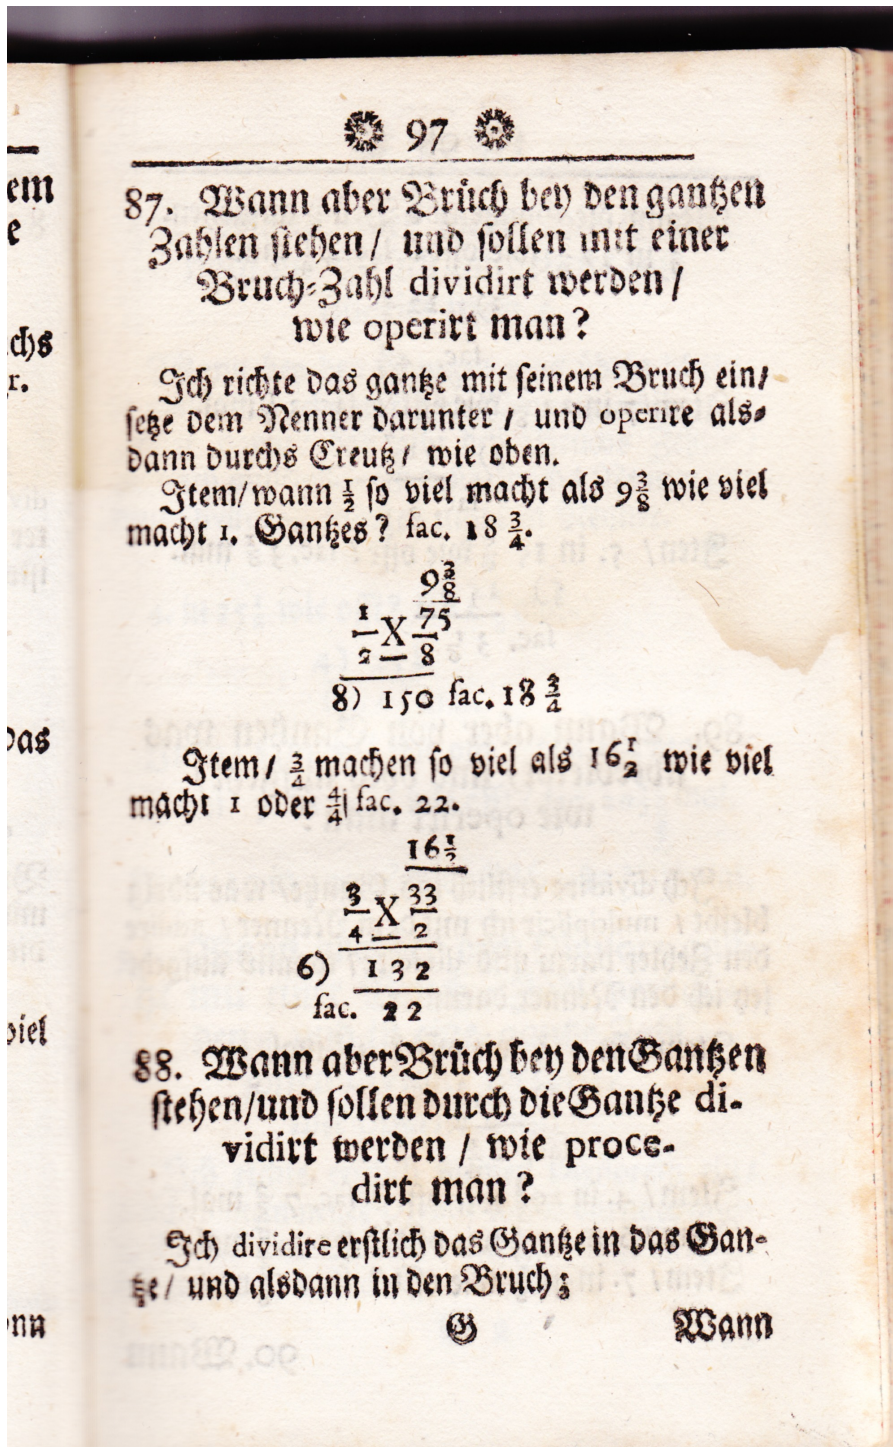 97
87. Wann aber Brüch bey den gantzen
Zahlen stehen / und sollen mit einer
Bruch-Zahl dividirt werden /
wie operirt man ?
Ich richte das gantze mit seinem Bruch ein /
setze dem Nenner darunter / und operire als-
dann durchs Creutz / wie oben.
Item / wann 1/2 so viel macht als 9 3/8 wie viel
macht 1. Gantzes ? fac. 18 3/4.
9 3/8
1/2 X 75/8
8) 150 fac. 18 3/4
Item / 3/4 machen so viel als 16 1/2 wie viel
macht 1 oder 4/4 | fac. 22.
16 1/2
3/4 X 33/2
6) 132
fac. 22
88. Wann aber Brüch bey den Gantzen
stehen / und sollen durch die Gantze di-
vidirt werden / wie proce-
dirt man ?
Ich dividire erstlich das Gantze in das Gan-
tze / und alsdann in den Bruch ;
G Wann
em
e
chs
r.
das
viel
nn